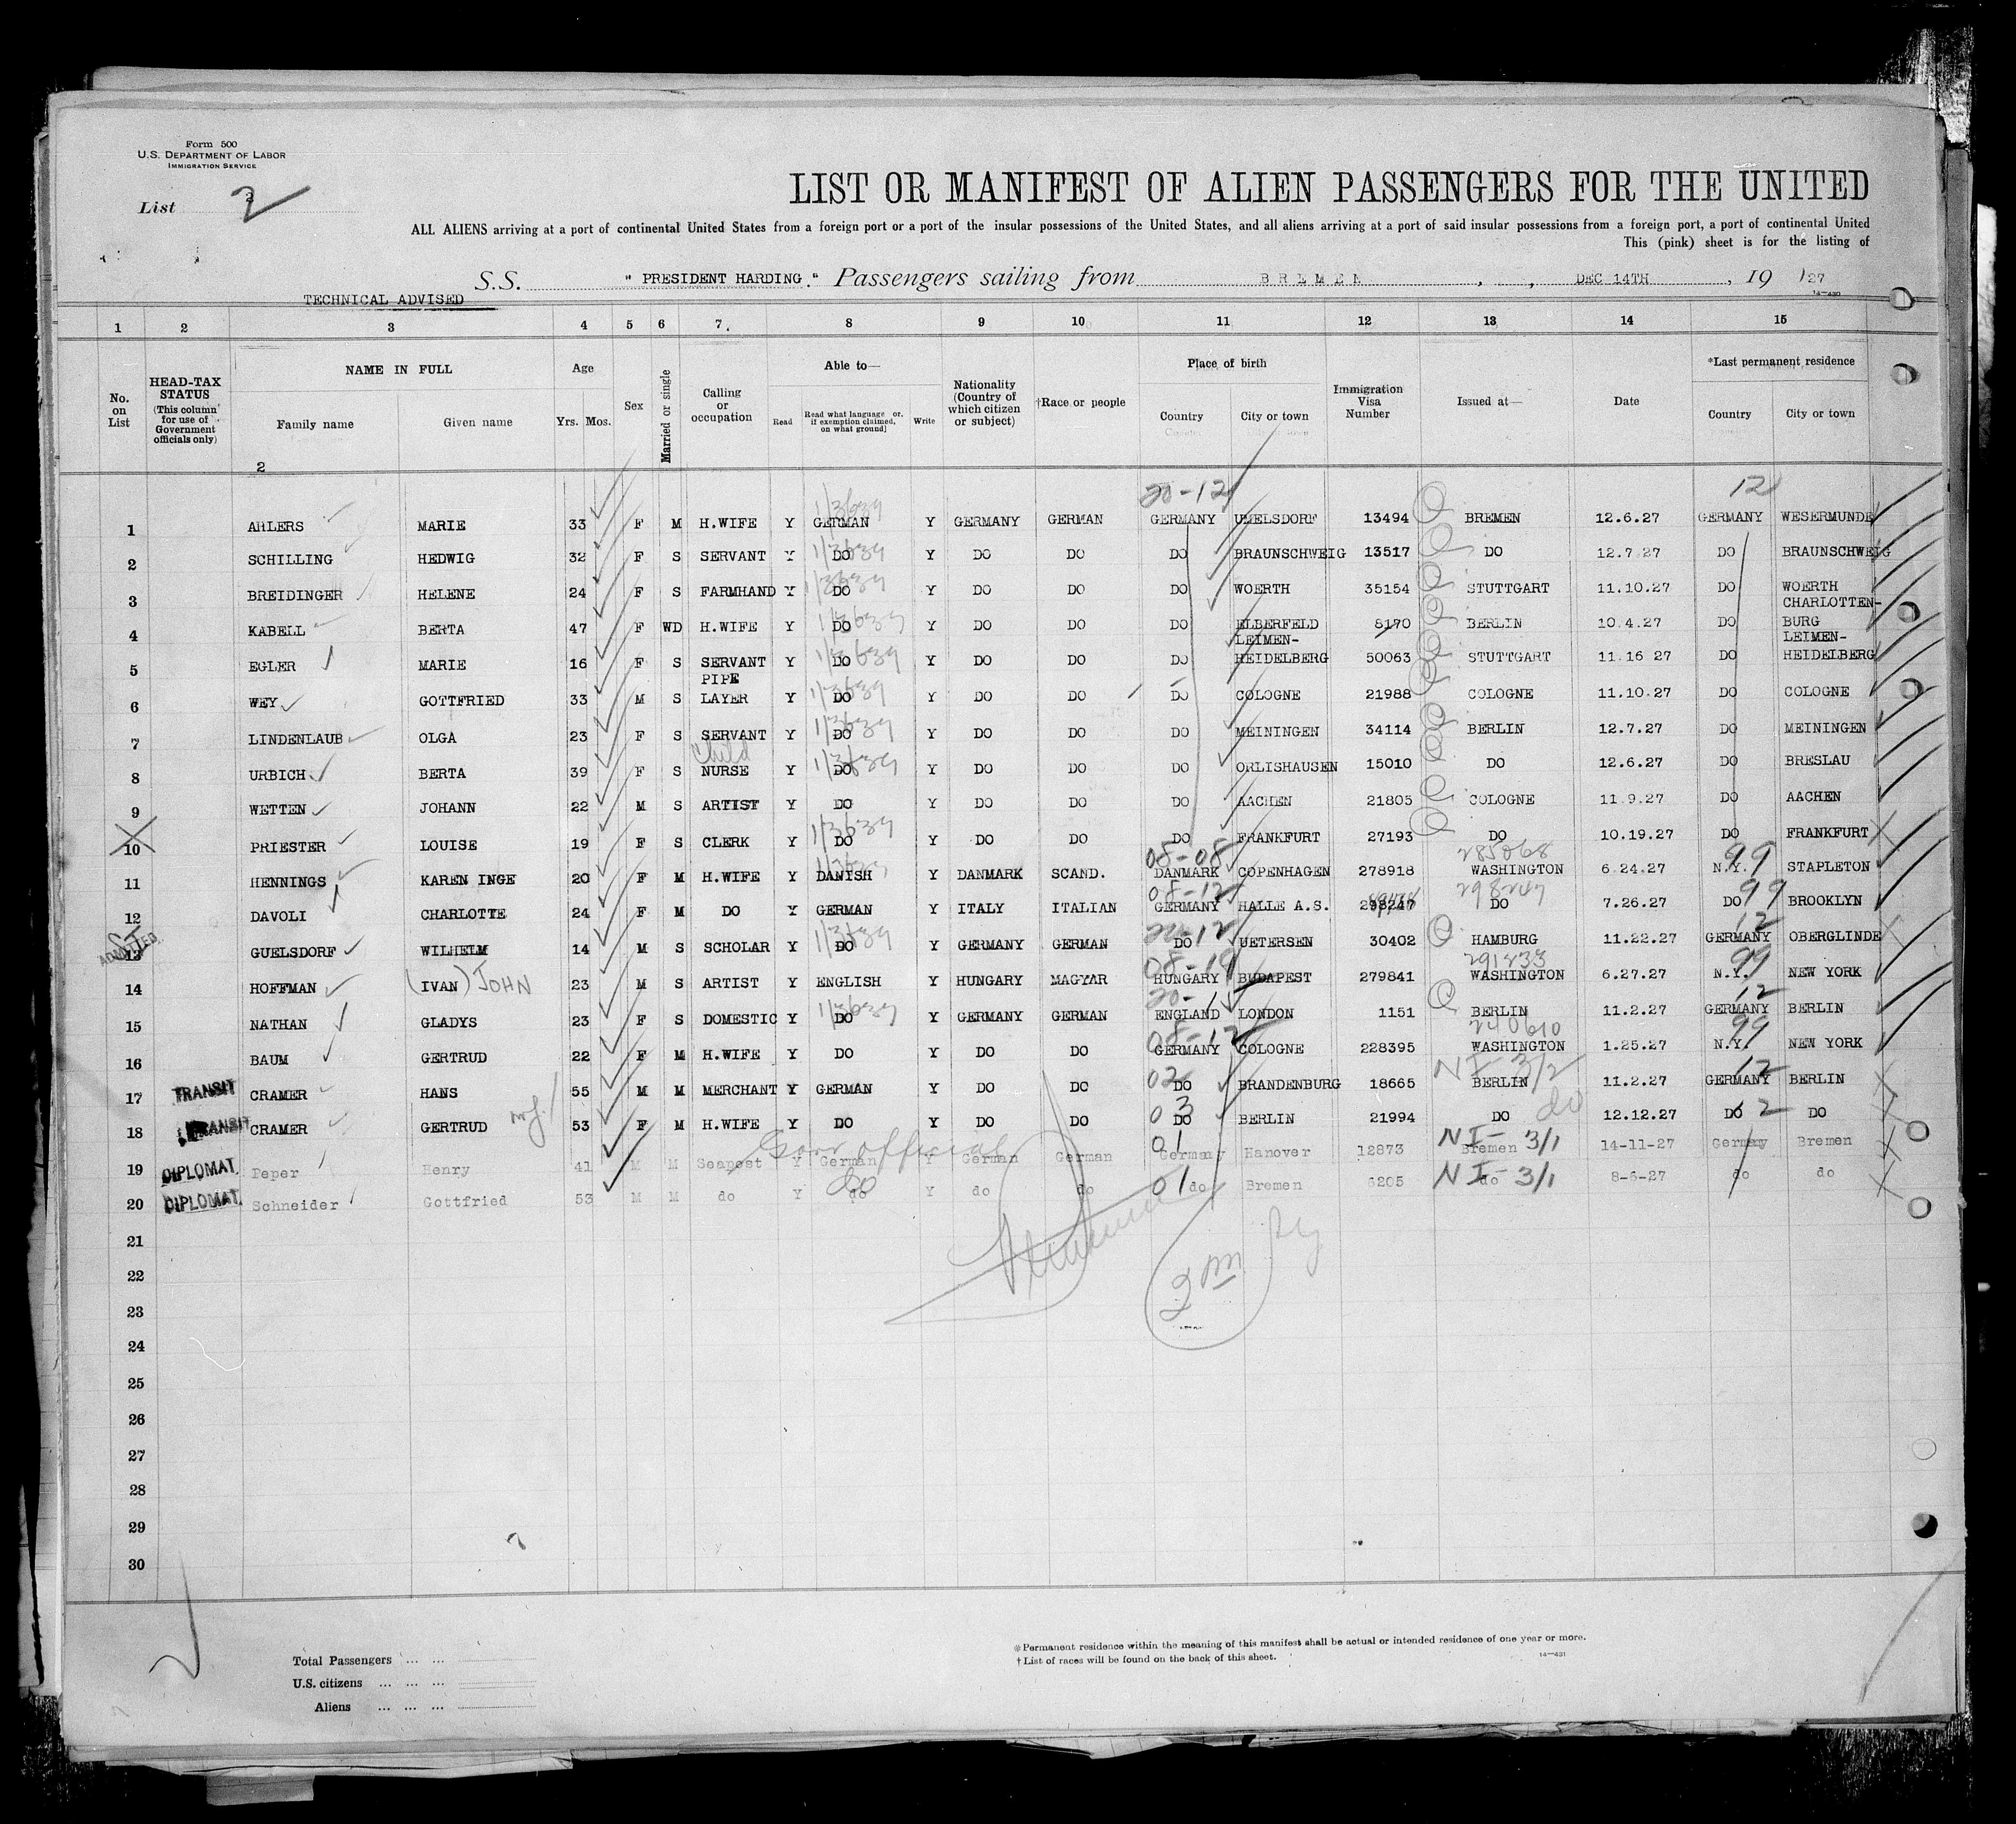 Form 500
U.S. DEPARTMENT OF LABOR
IMMIGRATION SERVICE
List 2
LIST OR MANIFEST OF ALIEN PASSENGERS FOR THE UNITED
ALL ALIENS arriving at a port of continental United States from a foreign port or a port of the insular possessions of the United States, and all aliens arriving at a port of said insular possessions from a foreign port, a port of continental United
This (pink) sheet is for the listing of
S.S. "PRESIDENT HARDING." Passengers sailing from BREMEN, DEC 14TH, 19 27
14—430
TECHNICAL ADVISED
1 2 3 4 5 6 7 8 9 10 11 12 13 14 15
No. on List
HEAD-TAX STATUS (This column for use of Government officials only)
NAME IN FULL
Family name Given name
Age
Yrs. Mos.
Sex
Married or single
Calling or occupation
Able to—
Read Read what language or, if exemption claimed, on what ground] Write
Nationality (Country of which citizen or subject)
†Race or people
Place of birth
Country City or town
Immigration Visa Number
Issued at—
Date
*Last permanent residence
Country City or town
2
20-12 12
1 AHLERS MARIE 33 F M H.WIFE Y GERMAN Y GERMANY GERMAN GERMANY UMELSDORF 13494 BREMEN 12.6.27 GERMANY WESERMUNDE
2 SCHILLING HEDWIG 32 F S SERVANT Y DO Y DO DO DO BRAUNSCHWEIG 13517 DO 12.7.27 DO BRAUNSCHWEIG
3 BREIDINGER HELENE 24 F S FARMHAND Y DO Y DO DO DO WOERTH 35154 STUTTGART 11.10.27 DO WOERTH
4 KABELL BERTA 47 F WD H.WIFE Y DO Y DO DO DO ELBERFELD 8170 BERLIN 10.4.27 DO CHARLOTTEN-BURG
5 EGLER MARIE 16 F S SERVANT Y DO Y DO DO DO LEIMEN-HEIDELBERG 50063 STUTTGART 11.16 27 DO LEIMEN-HEIDELBERG
6 WEY GOTTFRIED 33 M S PIPE LAYER Y DO Y DO DO DO COLOGNE 21988 COLOGNE 11.10.27 DO COLOGNE
7 LINDENLAUB OLGA 23 F S SERVANT Y DO Y DO DO DO MEININGEN 34114 BERLIN 12.7.27 DO MEININGEN
8 URBICH BERTA 39 F S Child NURSE Y DO Y DO DO DO ORLISHAUSEN 15010 DO 12.6.27 DO BRESLAU
9 WETTEN JOHANN 22 M S ARTIST Y DO Y DO DO DO AACHEN 21805 COLOGNE 11.9.27 DO AACHEN
10 PRIESTER LOUISE 19 F S CLERK Y DO Y DO DO DO FRANKFURT 27193 DO 10.19.27 DO FRANKFURT
08-08 285068 99
11 HENNINGS KAREN INGE 20 F M H.WIFE Y DANISH Y DANMARK SCAND. DANMARK COPENHAGEN 278918 WASHINGTON 6.24.27 N.Y. STAPLETON
08-12 298247 99
12 DAVOLI CHARLOTTE 24 F M DO Y GERMAN Y ITALY ITALIAN GERMANY HALLE A.S. 298247 DO 7.26.27 DO BROOKLYN
12
ADMITTED
13 GUELSDORF WILHELM 14 M S SCHOLAR Y DO Y GERMANY GERMAN DO UETERSEN 30402 HAMBURG 11.22.27 GERMANY OBERGLINDE
291233 99
14 HOFFMAN (IVAN) JOHN 23 M S ARTIST Y ENGLISH Y HUNGARY MAGYAR HUNGARY BUDAPEST 279841 WASHINGTON 6.27.27 N.Y. NEW YORK
12
15 NATHAN GLADYS 23 F S DOMESTIC Y DO Y GERMANY GERMAN ENGLAND LONDON 1151 BERLIN 11.2.27 GERMANY BERLIN
08-12 240610 99
16 BAUM GERTRUD 22 F M H.WIFE Y DO Y DO DO GERMANY COLOGNE 228395 WASHINGTON 1.25.27 N.Y. NEW YORK
02 NI-3/2 12
17 TRANSIT CRAMER HANS 55 M M MERCHANT Y GERMAN Y DO DO DO BRANDENBURG 18665 BERLIN 11.2.27 GERMANY BERLIN
03 do 12
18 TRANSIT CRAMER GERTRUD 53 F M H.WIFE Y DO Y DO DO DO BERLIN 21994 DO 12.12.27 DO DO
Gov. official 01 NI- 3/1
19 DIPLOMAT. Peper Henry 41 M M Seapost Y German Y German German Germany Hanover 12873 Bremen 14-11-27 Germany Bremen
do 01 NI- 3/1
20 DIPLOMAT. Schneider Gottfried 53 M M do Y do Y do do do Bremen 6205 do 8-6-27 do do
21
22
23
24
25
26
27
28
29
30
Total Passengers
U.S. citizens
Aliens
*Permanent residence within the meaning of this manifest shall be actual or intended residence of one year or more.
†List of races will be found on the back of this sheet.
14—431